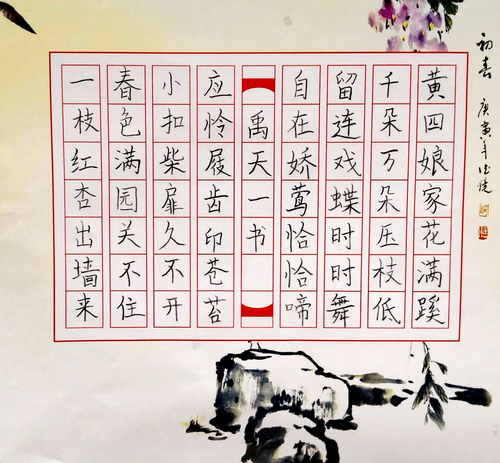 初春 庚寅年
黄四娘家花满蹊
千朵万朵压枝低
留连戏蝶时时舞
自在娇莺恰恰啼
禹天一书
应怜屐齿印苍苔
小扣柴扉久不开
春色满园关不住
一枝红杏出墙来